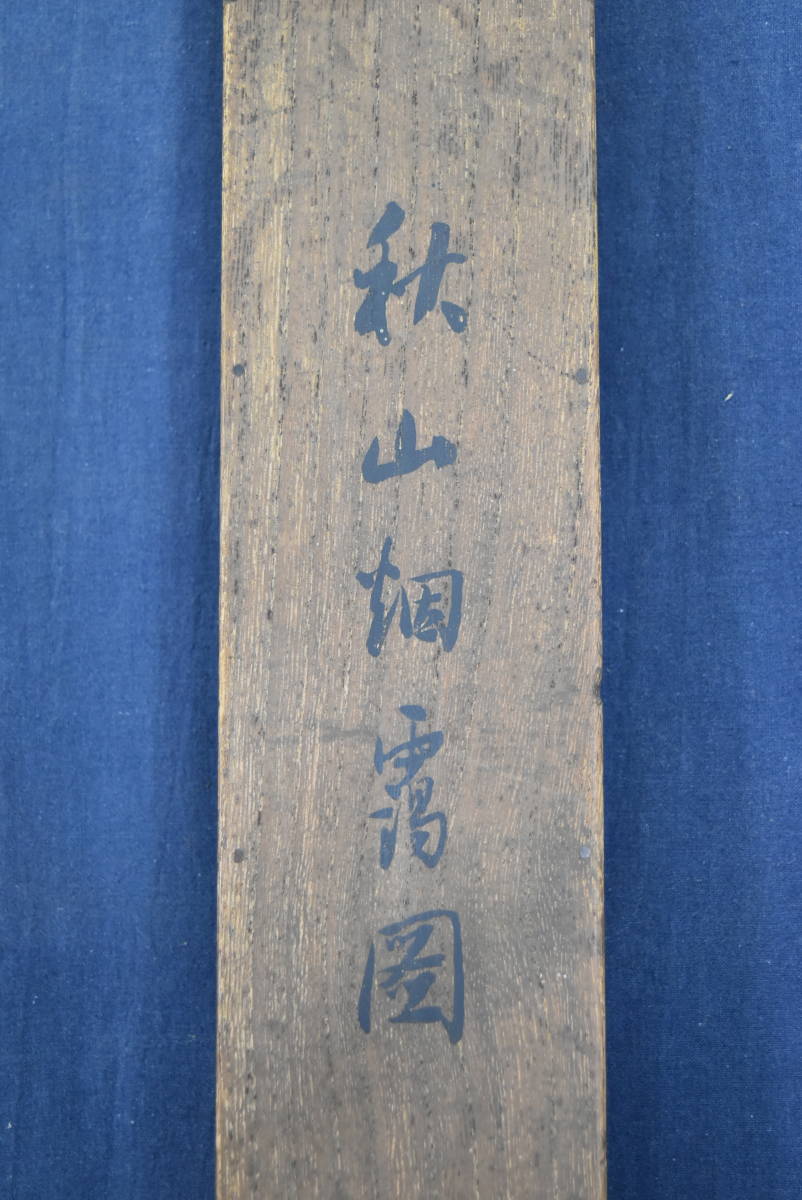 秋山烟靄圖